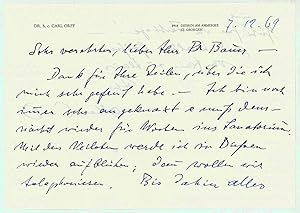 DR. h. c. CARL ORFF
8918 DIESSEN AM AMMERSEE
ST. GEORGEN
7.12.69
Sehr verehrter, lieber Herr Dr. Bauer –
Dank für Ihre Zeilen, über die ich
mich sehr gefreut habe – Ich bin noch
immer sehr angeknaxt u muß dem-
nächst wieder für Wochen ins Sanatorium.
Mit den Veilchen werde ich in Diessen
wieder aufblühen, dann wollen wir
telephonieren. Bis dahin alles